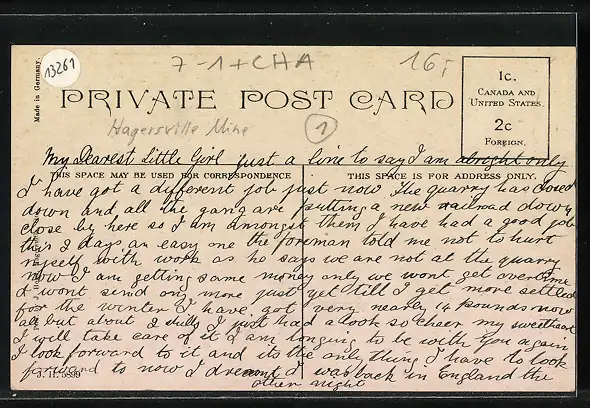 13261
7-1+CHA
16,-
Made in Germany.
PRIVATE POST CARD
1c.
CANADA AND
UNITED STATES.
2c
FOREIGN.
Hagersville Mine
1
My Dearest Little Girl just a line to say I am alright only
THIS SPACE MAY BE USED FOR CORRESPONDENCE
THIS SPACE IS FOR ADDRESS ONLY.
I have got a different job just now The quarry has closed
down and all the gang are putting a new railroad down
close by here so I am amongst them I have had a good job
this 2 days an easy one the foreman told me not to hurt
myself with work as he says we are not at the quarry
now I am getting same money only we wont get overtime
I wont send on more just yet till I get more settled
for the winter I have got very nearly 14 pounds now
all but about 2 shills I just had a look so cheer my sweetheart
I will take care of it I am longing to be with you again
I look forward to it and its the only thing I have to look
forward to now I dreamt I was back in England the
other night
J. H. 5899